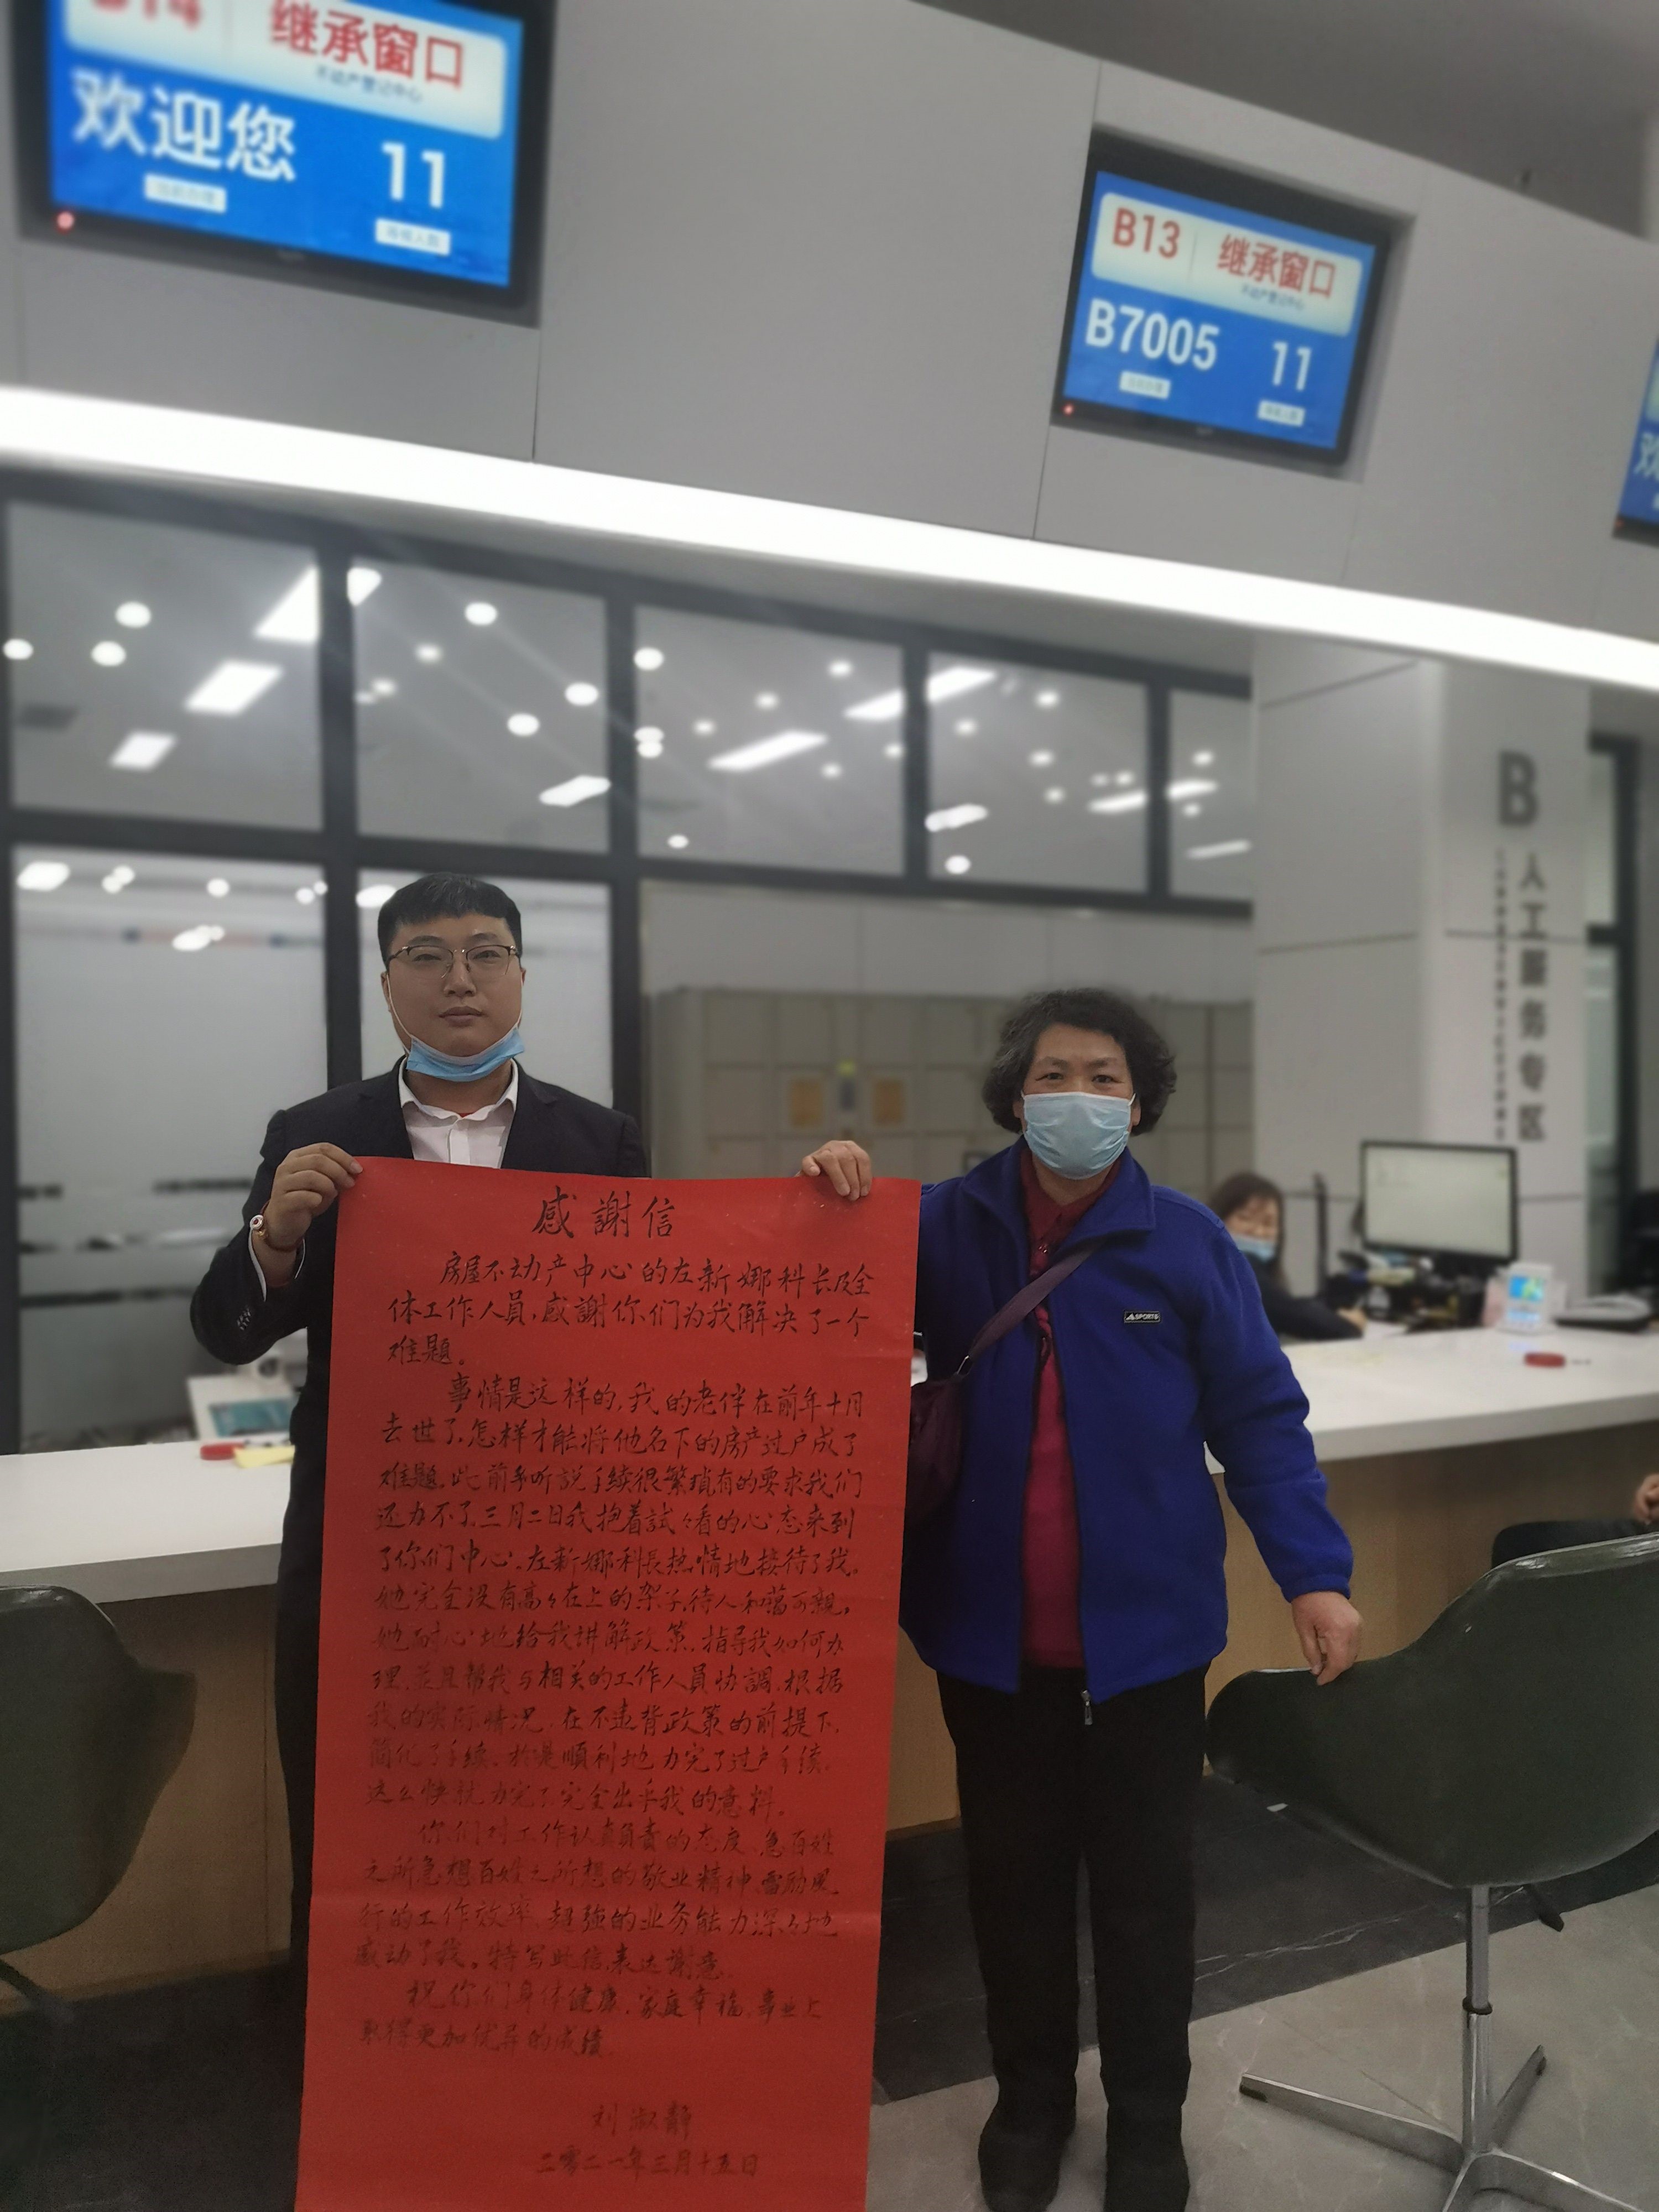 继承窗口
不动产登记中心
欢迎您
11
B13
继承窗口
不动产登记中心
B7005
11
B
人工服务专区
SPORTS
感謝信
房屋不动产中心的左新娜科长及全
体工作人員，感謝你们为我解决了一个
难题。
事情是这样的，我的老伴在前年十月
去世了，怎样才能将他名下的房产过户成了
难题。此前听说手续很繁琐有的要求我们
还办不了，三月二日我抱着試々看的心态来到
了你们中心，左新娜科長热情地接待了我。
她完全没有高々在上的架子，待人和蔼可親。
她耐心地给我讲解政策，指导我如何办
理，並且帮我与相关的工作人員协調，根据
我的实际情况，在不违背政策的前提下，
簡化了手续，於是順利地办完了过户手续，
这么快就办完了完全出乎我的意料。
你们对工作认真負责的态度，急百姓
之所急想百姓之所想的敬业精神，雷励風
行的工作效率，超强的业务能力深々地
感动了我。特写此信，表达謝意。
祝你们身体健康，家庭幸福，事业上
取得更加优异的成績。
刘淑静
二零二一年三月十五日